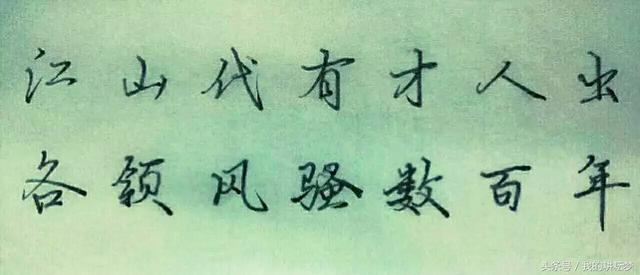 江山代有才人出
各领风骚数百年
头条号/我的讲坛梦